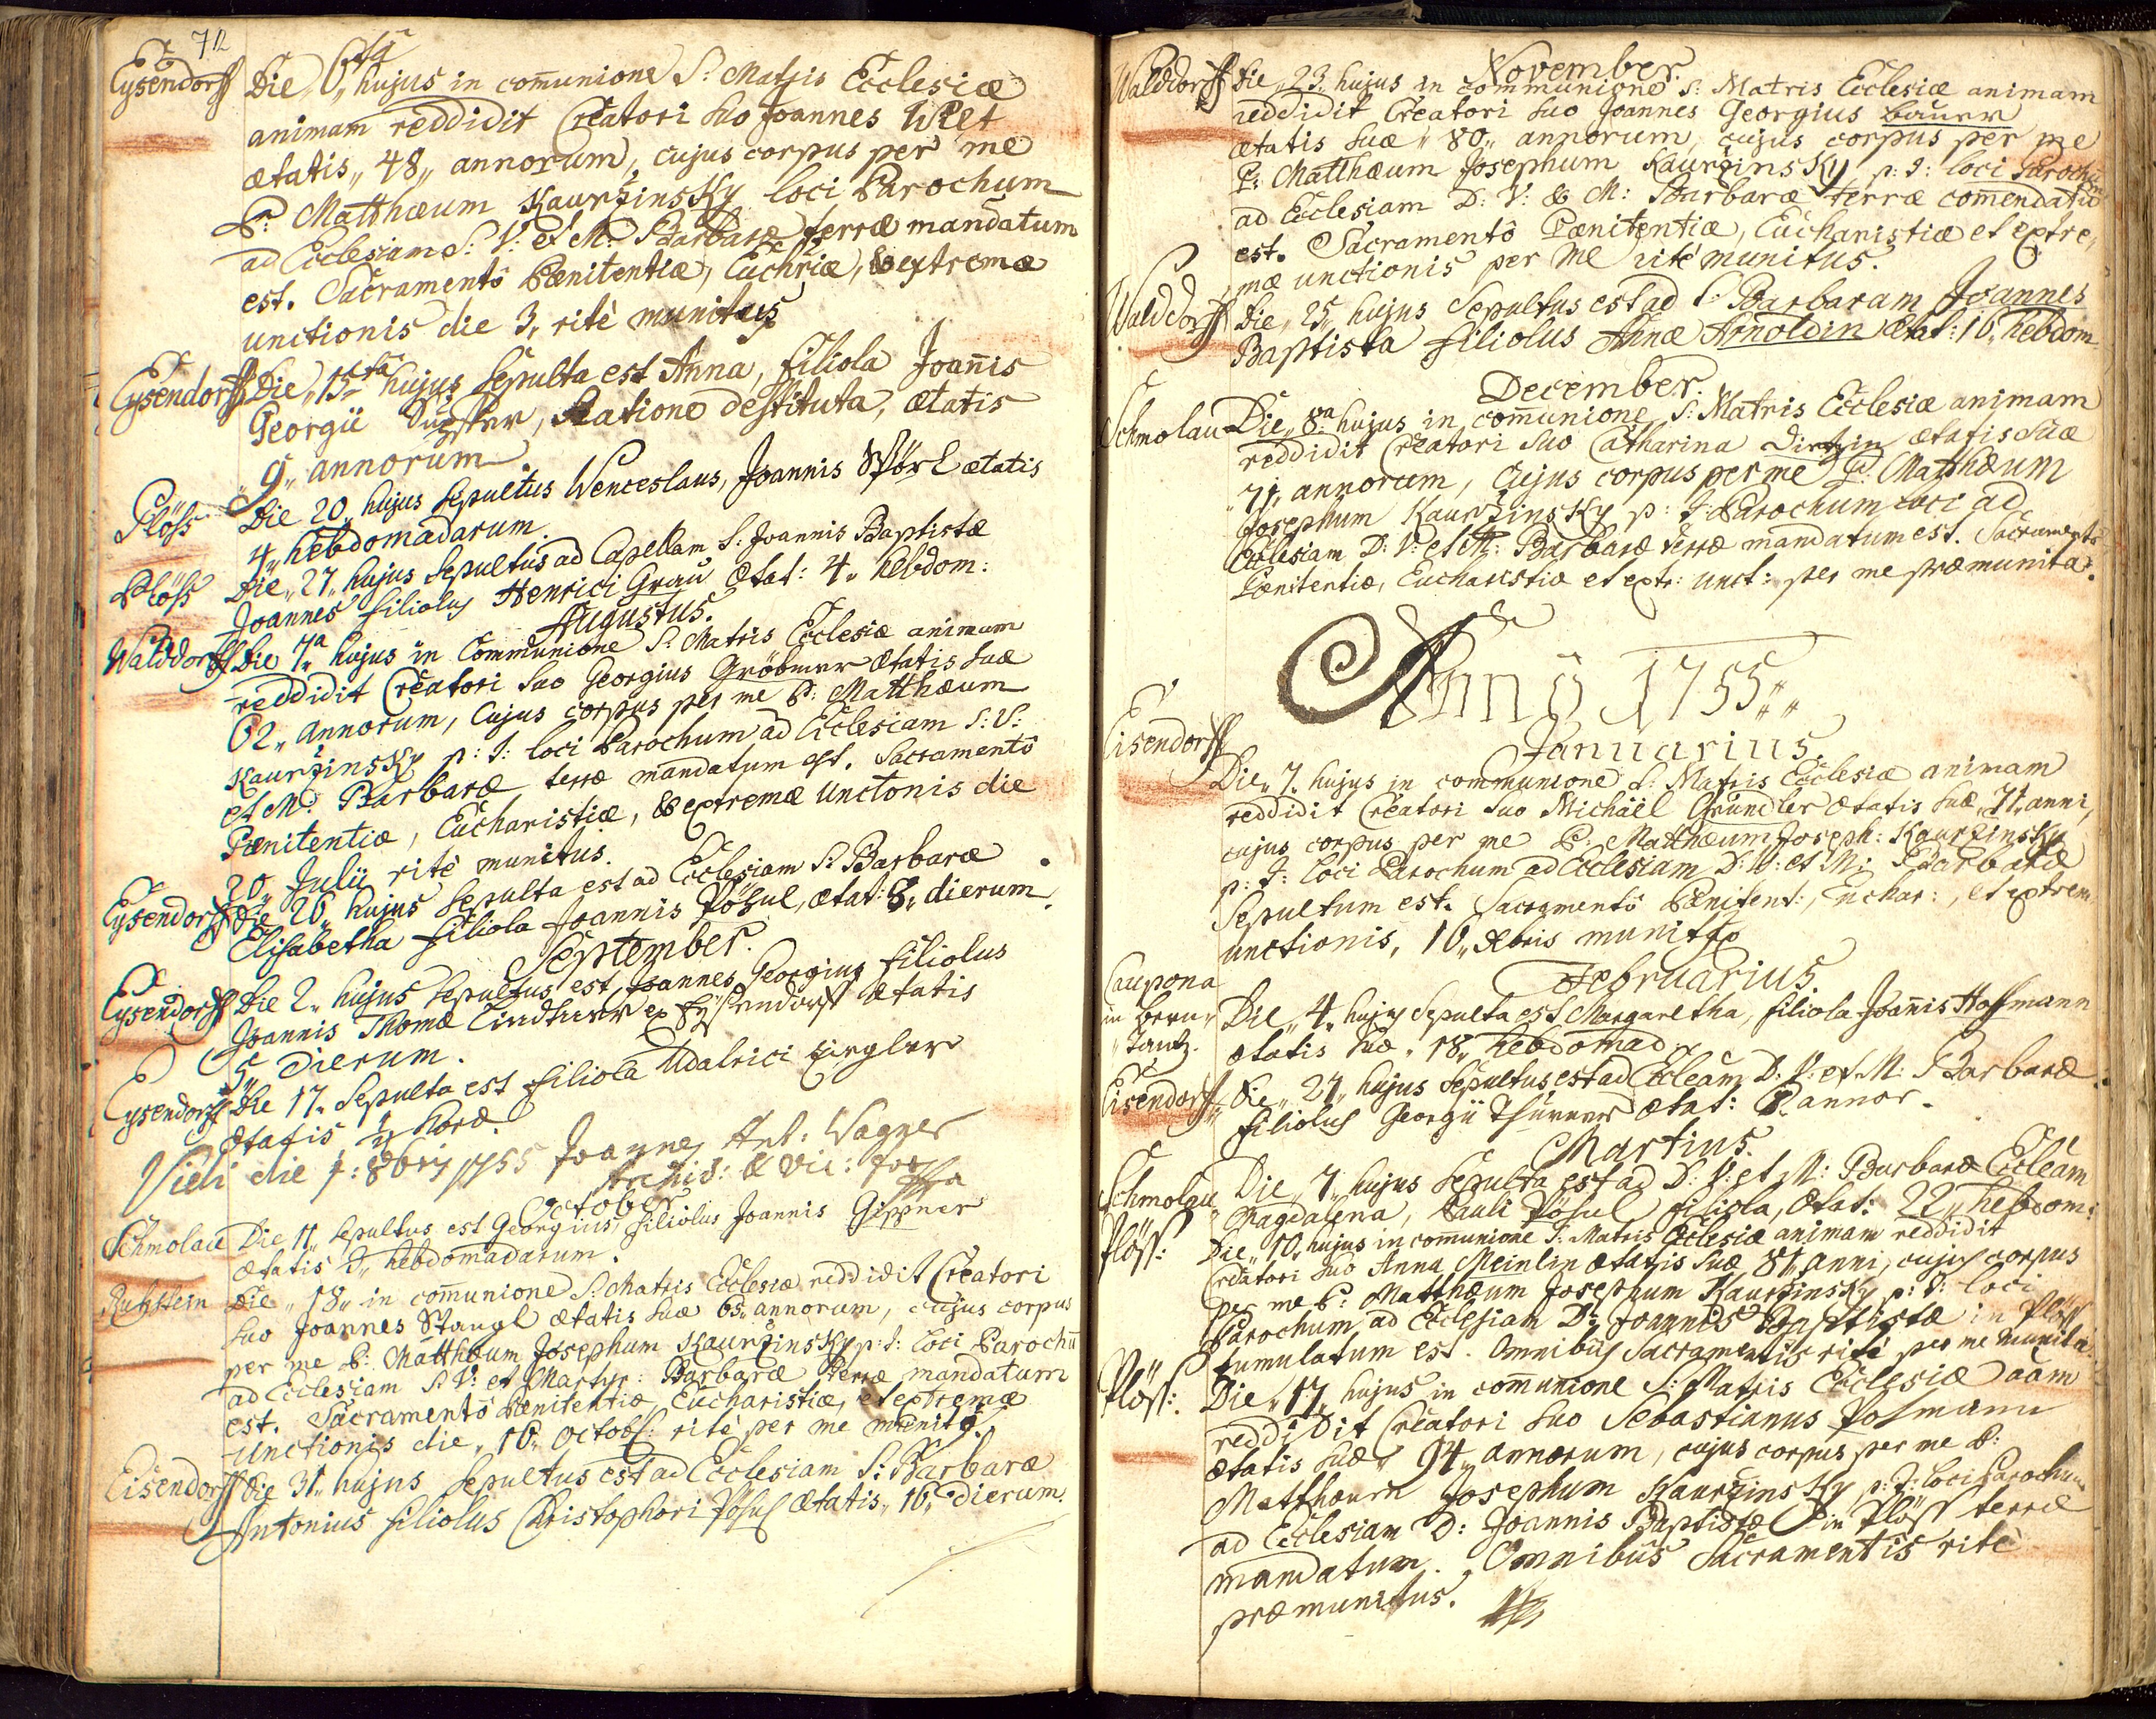 72
Eysendorff Die 6ta hujus in com̄unione S: Matris Ecclesiæ
animam reddidit Creatori suo Joannes Wilt
ætatis „48„ annorum, cujus corpus per me
P: Matthæum Kauržinsky loci Parochum
ad Ecclesiam S: V: et M: Barbaræ terræ mandatum
est. Sacramentô Pænitentiæ, Euchriæ, & extremæ
unctionis die 3„ ritè munitus
Eysendorff Die „15ta hujus Sepulta est Anna, filiola Joan̄is
Georgii, Ratione destituta, ætatis
„9„ annorum.
Plöss Die 20„ hujus Sepultus Wenceslaus, Joannis Spörl ætatis
4„ hebdomadarum.
Plöss Die „27„ hujus Sepultus ad Capellam S: Joannis Baptistæ
Joannes filiolus Henrici Grau Ætat: 4„ hebdom:
Augustus.
Walddorff Die 7a hujus in Communione S: Matris Ecclesiæ animam
reddidit Creatori suo Georgius Gröbner Ætatis suæ
62„ annorum, Cujus corpus per me P: Matthæum
Kauržinsky p: t: loci Parochum ad Ecclesiam S: V:
et M: Barbaræ terræ mandatum est. Sacramentô
Pænitentiæ, Eucharistiæ, & extremæ Unctonis die
20„ Julii ritè munitus.
Eysendorff Die 26„ hujus Sepulta est ad Ecclesiam S: Barbaræ
Elisabetha filiola Joannis Pösul, ætat: 8„ dierum.
September.
Eysendorff Die 2„ hujus Sepultus est Joannes Georgius filiolus
Joannis Thomæ Lindtner ex Eysendorff ætatis
5„ Dierum.
Eysendorff Die 17„ Sepulta est filiola Udalrici Ziegler
Ætatis ½ horæ.
Vidi die 1: 8bris 1755 Joannes Ant: Wagner
Archid: & Vic: For
October
Schmolau Die 11„ Sepultus est Georgius, filiolus Joannis Gippner
Ætatis 3„ hebdomadarum.
Ruhstein Die „18„ in com̄unione S: Matris Ecclesiæ reddidit Creatori
suo Joannes Stangl ætatis suæ 65„ annorum, cujus corpus
per me P: Matthæum Josephum Kauržinsky p: t: loci Parochū
ad Ecclesiam S: V: et Martyr: Barbaræ terræ mandatum
est. Sacramentô Pænitentiæ, Eucharistiæ, et extremæ
Unctionis die „16„ Octob: ritè per me munitg.
Eisendorff Die 31„ hujus Sepultus est ad Ecclesiam S: Barbaræ
Antonius filiolus Christophori Pösul Ætatis „16„ Dierum.
November.
Walddorff Die „23„ hujus in communione S: Matris Ecclesiæ animam
reddidit Creatori suo Joannes Georgius Bauer
ætatis suæ „80„ annorum, cujus corpus per me
P: Matthæum Josephum Kauržinsky, p: t: loci Parochū
ad Ecclesiam D: V: & M: Barbaræ terræ com̄endatū
est. Sacramentô Pænitentiæ, Eucharistiæ et extre„
mæ unctionis per me ritè munitus.
Walddorff Die „25„ hujus Sepultus est ad S: Barbaram Joannes
Baptista filiolus Annæ Arnoldin Ætat: 16„ hebdom
December.
Schmolau Die „8a hujus in com̄unione S: Matris Ecclesiæ animam
reddidit Creatori suo Catharina Dirtzin ætatis suæ
„71„ annorum, Cujus corpus per me P: Matthæum
Josephum Kauržinsky p: t: Parochum loci ad
Ecclesiam D: V: et M: Barbaræ terræ mandatum est. Sacramentô
Pænitentiæ, Eucharistiæ et extr: unct: per me præmunita.
Annô 1755„
Januarius
Eisendorff
Die „7„ hujus in communione S: Matris Ecclesiæ animam
reddidit Creatori suo Michäel Gründler Ætatis suæ „71„ anni,
cujus corpus per me P: Matthæum Joseph: Kauržinsky
p: t: loci Parochum ad Ecclesiam D: V: et M: Barbaræ
Sepultum est. Sacramentô Pænitent:, Euchar:, et extrem
unctionis, 10„ Xbris munitg
Februarius.
Caupona
in Bern„
„Tantz.
Die „4„ hujus Sepulta est Margaretha, filiola Joan̄is Hoffmann
ætatis suæ „18„ hebdomad
Eisendorff„ Die „27„ hujus Sepultus est ad Eccleām D: V: et M: Barbaræ
filiolus Georgii Thürner Ætat: annor.
Martius.
Schmolau Die „7„ hujus Sepulta est ad D: V: et M: Barbaræ Eccleām
Magdalena, Pauli Pösul filiola, Ætat: 22„ hebdom:
Plöss: Die „10„ hujus in communione S: Matris Ecclesiæ animam reddidit
Creatori suo Anna Meinlin Ætatis suæ 81 anni, cujus corpus
per me P: Matthæum Josephum Kauržinsky p: t: loci
Parochum ad Ecclesiam D: Joannis Baptistæ in Plöss
tumulatum est. Omnibus Sacramentis ritè per me munita.
Plöss: Die „17„ hujus in com̄unione S: Matris Ecclesiæ aām
reddidit Creatori suo Sebastianus Posmann
Ætatis suæ „94„ annorum, cujus corpus per me P:
Matthæum Josephum Kauržinsky p: t: loci Parochum
ad Ecclesiam D: Joannis Baptistæ in Plöss terræ
mandatum. Omnibus Sacramentis ritè
præmunitus.